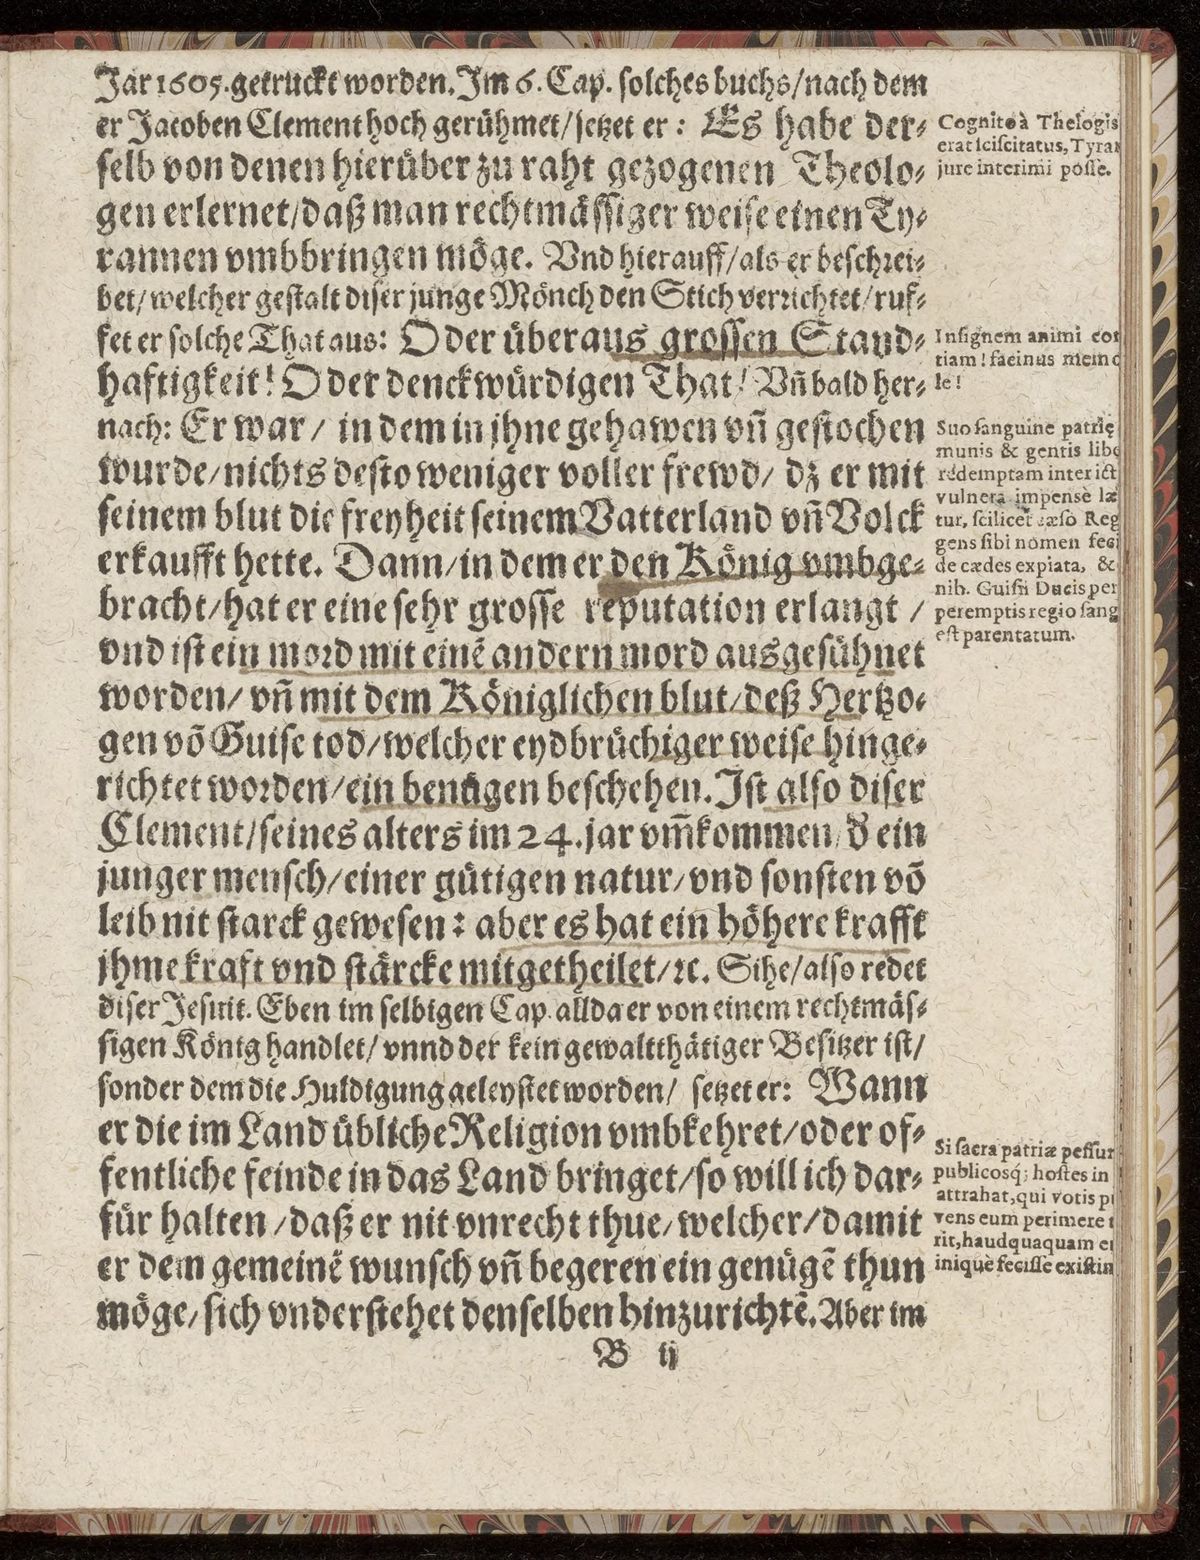 Jar 1605. getruckt worden. Im 6. Cap. solches buchs/ nach dem
er Jacoben Clement hoch gerühmet/ setzet er: Es habe der⸗
selb von denen hierüber zu raht gezogenen Theolo⸗
gen erlernet/ daß man rechtmässiger weise einen Ty⸗
rannen vmbbringen möge. Vnd hierauff/ als er beschrei⸗
bet/ welcher gestalt diser junge Mönch den Stich verrichtet/ ruf⸗
fet er solche That aus: O der überaus grossen Stand⸗
haftigkeit! O der denckwürdigen That! Vñ bald her⸗
nach: Er war/ in dem in jhne gehawen vñ gestochen
wurde/ nichts desto weniger voller frewd/ dz er mit
seinem blut die freyheit seinem Vatterland vñ Volck
erkaufft hette. Dann/ in dem er den König vmbge⸗
bracht/ hat er eine sehr grosse reputation erlangt /
vnd ist ein mord mit einẽ andern mord ausgesühnet
worden/ vñ mit dem Königlichen blut/ deß Hertzo⸗
gen võ Guise tod/ welcher eydbrüchiger weise hinge⸗
richtet worden/ ein benügen beschehen. Ist also diser
Clement/ seines alters im 24. jar vm̃kommen/ d̃ ein
junger mensch/ einer gütigen natur/ vnd sonsten võ
leib nit starck gewesen: aber es hat ein höhere krafft
jhme kraft vnd stärcke mitgetheilet/ ꝛc. Sihe/ also redet
diser Jesuit. Eben im selbigen Cap. allda er von einem rechtmäs⸗
sigen König handlet/ vnnd der kein gewaltthätiger Besitzer ist/
sonder dem die Huldigung geleystet worden/ setzet er: Wann
er die im Land übliche Religion vmbkehret/ oder of⸗
fentliche feinde in das Land bringet/ so will ich dar⸗
für halten/ daß er nit vnrecht thue/ welcher/ damit
er dem gemeinẽ wunsch vñ begeren ein genügẽ thun
möge/ sich vnderstehet denselben hinzurichtẽ. Aber im
B ij
Cognito à Theologis
erat sciscitatus, Tyran
jure interimi posse.
Insignem animi con
tiam! facinus memo
le!
Suo sanguine patrię
munis & gentis libe
redemptam inter ict
vulnera impensè læ
tur, scilicet cæso Reg
gens sibi nomen feci
de cædes expiata, &
nib. Guisii Ducis per
peremptis regio sang
est parentatum.
Si sacra patriæ pessun
publicosq; hostes in
attrahat, qui votis p
vens eum perimere t
rit, haudquaquam e
iniquè fecisse existim